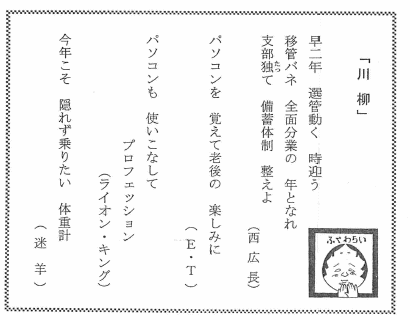 「川 柳」
早二年 選管動く 時迎う
移管バネ 全面分業の 年となれ
支部独て 備蓄体制 整えよ
たっ
(西 広 長)
パソコンを 覚えて老後の 楽しみに
(E・T)
パソコンも 使いこなして
プロフェッション
(ライオン・キング)
今年こそ 隠れず乗りたい 体重計
(迷 羊)
ふさわらい